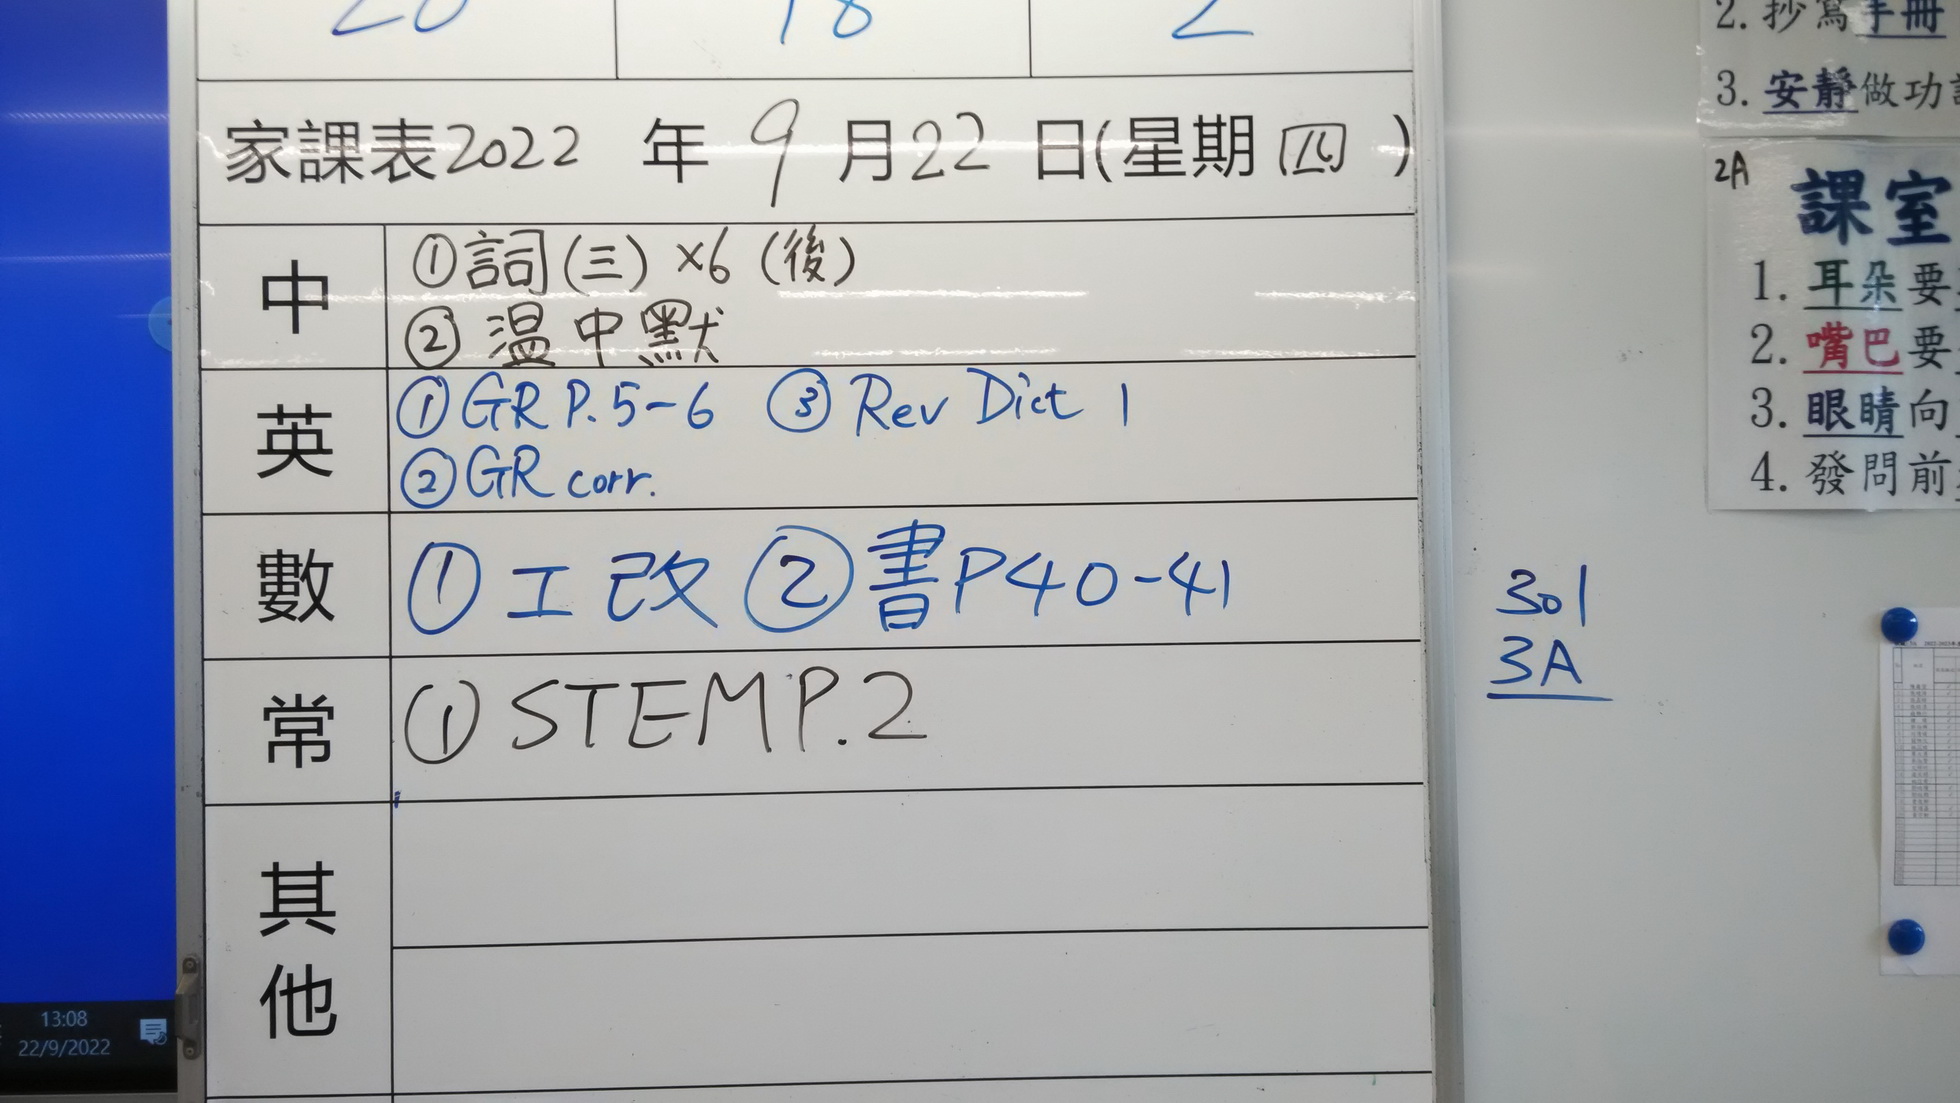 20 18 2
家課表2022 年 9 月22 日(星期 四 )
中
①詞(三) ×6 (後)
② 温中默
英
①GR P.5-6 ③ Rev Dict 1
②GR corr.
數
① 工改 ②書P40-41
常
① STEM P.2
其他
13:08
22/9/2022
301
3A
2. 抄寫手冊
3. 安靜做功
2A
課室
1. 耳朵要
2. 嘴巴要
3. 眼睛向
4. 發問前